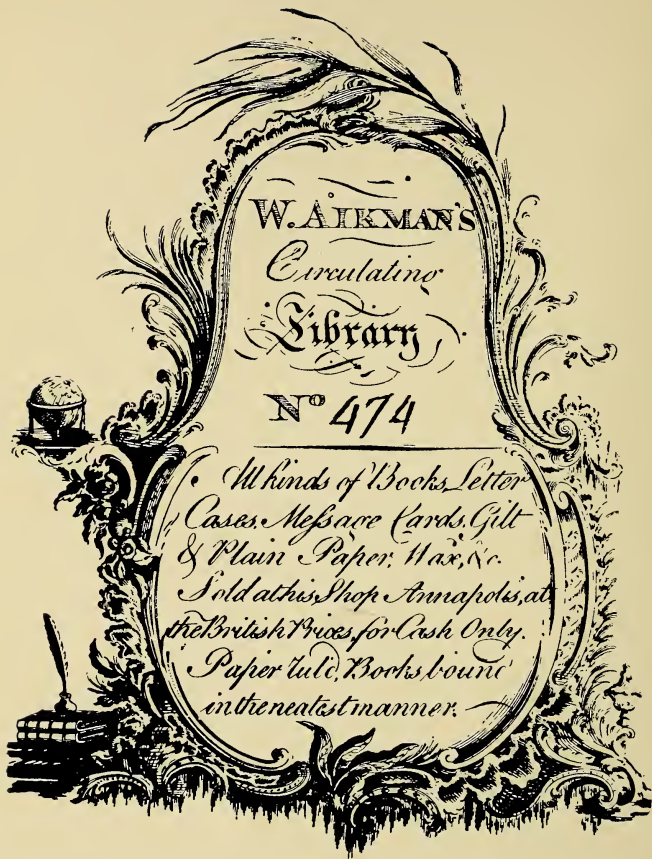 W. AIKMAN'S
Circulating
Library
No 474
All kinds of Books, Letter
Cases, Meſsage Cards, Gilt
& Plain Paper, Wax, &c.
Sold at his Shop Annapolis, at
the British Prices, for Cash Only.
Paper rul'd, Books bound
in the neatest manner.